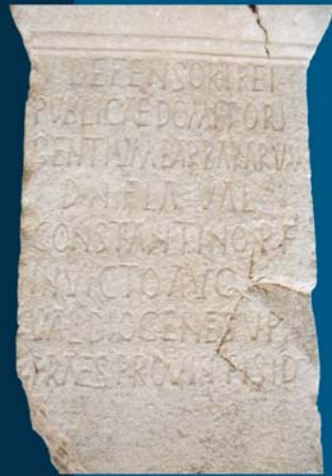 DEFENSORI REI
PUBLICAE DOMITORI
GENTIUM BARBARARUM
D N FLA VAL
CONSTANTINO P F
INVICTO AVG
VAL DIOGENES V P
PRAES PROVIN PISID